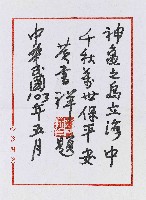 神龜之島立海中
千秋萬世保平安
黃書祥題
中華民國103年五月